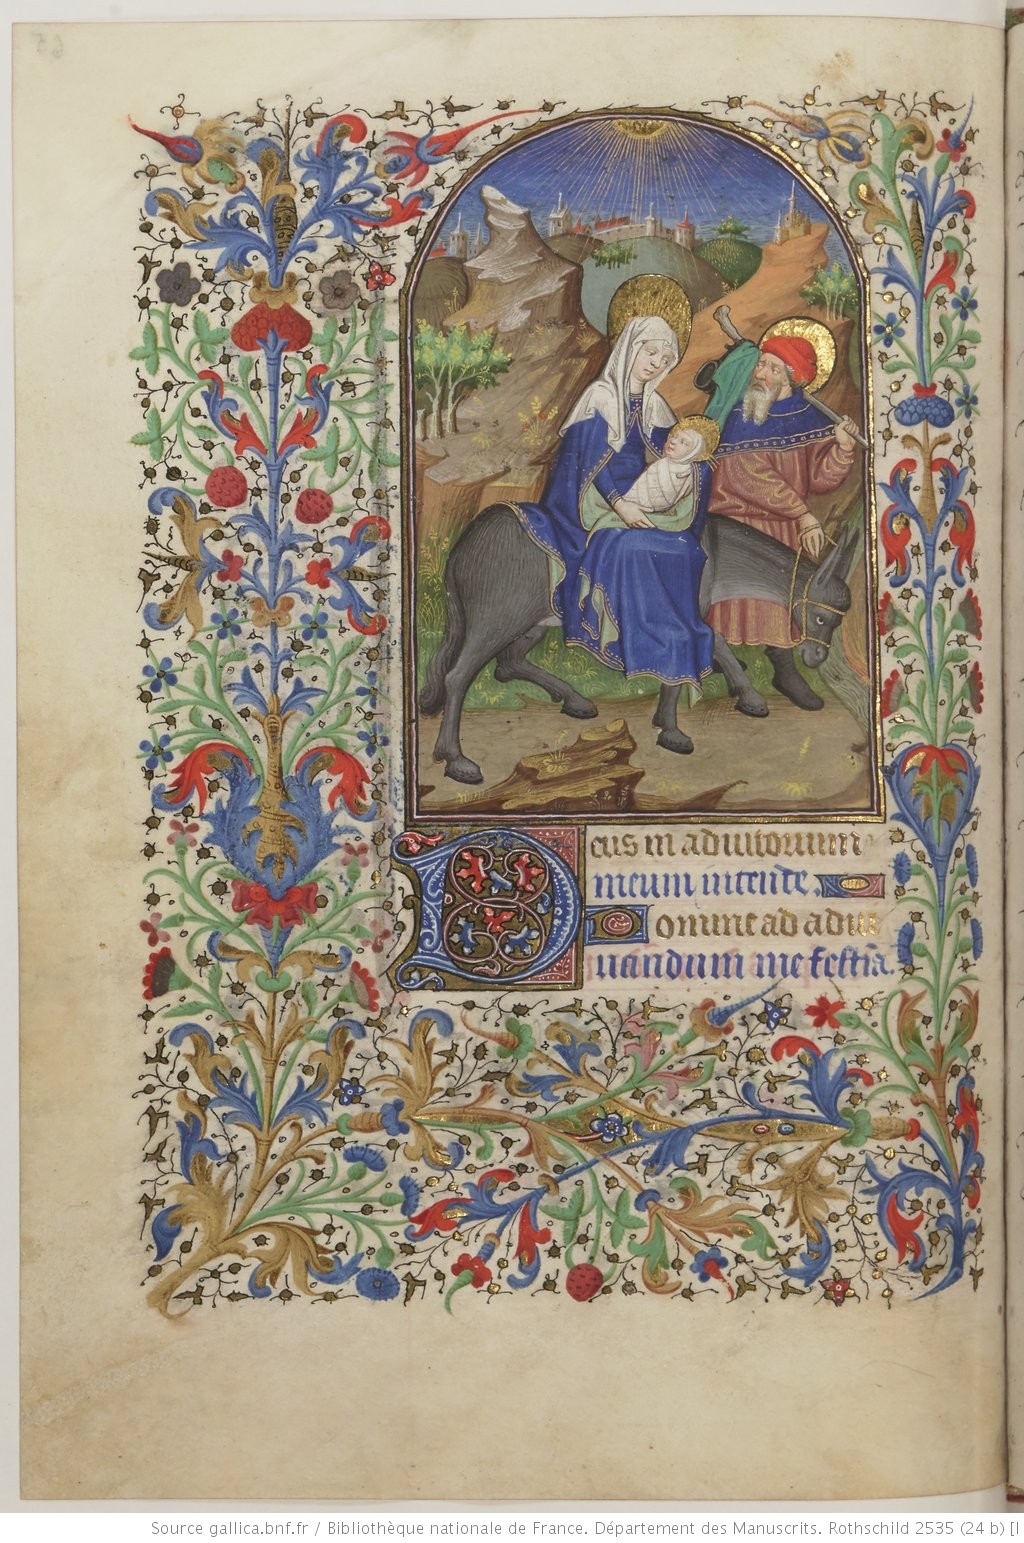 Deus in adiutorium
meum intende.
Domine ad adiu
uandum me festia.
Source gallica.bnf.fr / Bibliothèque nationale de France. Département des Manuscrits. Rothschild 2535 (24 b) [I